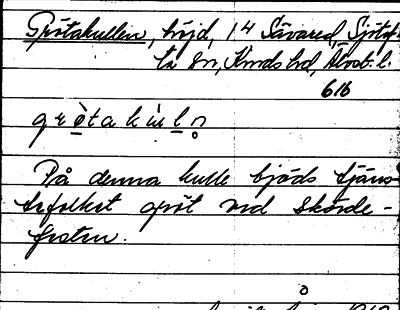 Grötakullen, höjd, 14 Sävared, Sjötof-
ta sn, Kinds hd, Älvsb. l.
616
grö̀takúḷn̥
På denna kulle bjöds tjäns-
tefolket gröt vid skörde-
festen.